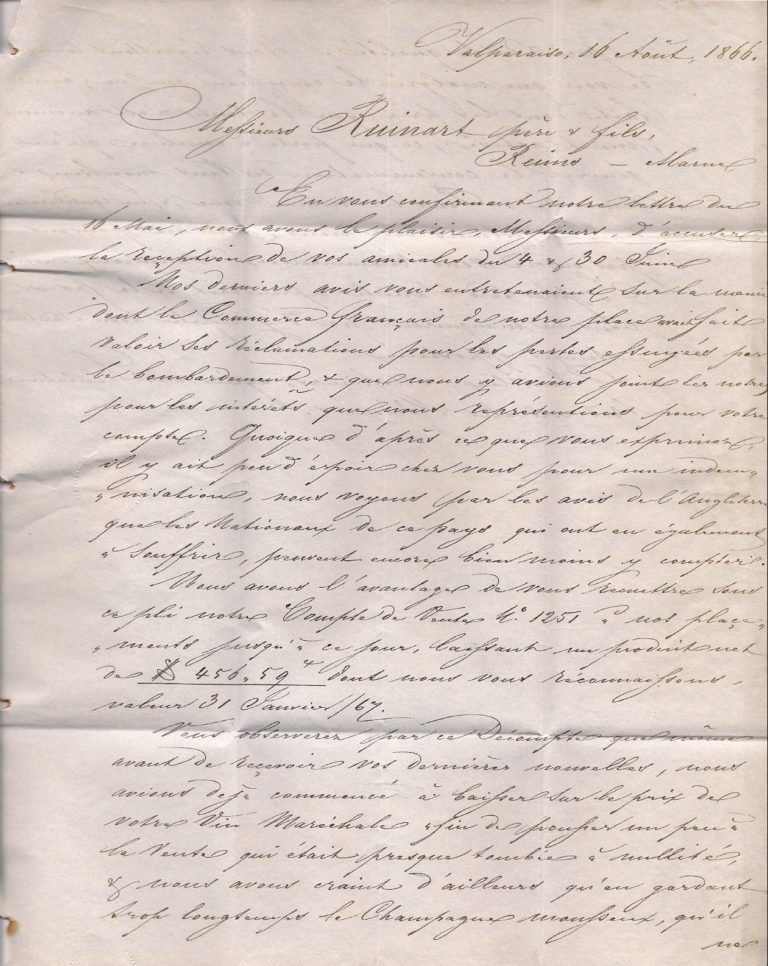 Valparaiso, 16 Août, 1866.
Messieurs Ruinart père & fils,
Reims – Marne
En vous confirmant notre lettre du
16 Mai, nous avons le plaisir, Messieurs, d'accuser
la réception de vos amicales du 4 & 30 Juin
Nos derniers avis vous entretenaient sur la
dont le Commerce français de notre place avait fait
valoir ses réclamations pour les pertes essuyées par
le bombardement, & que nous y avions joint les notres
pour les intérêts que nous représentions pour votre
compte. Quoique d'après ce que vous exprimez,
il y ait peu d'espoir chez vous pour un indem-
-nisation, nous voyons par les avis de l'Angleterre
que les Nationaux de ce pays qui ont eu également
à souffrir, peuvent encore bien moins y compter.
Nous avons l'avantage de vous remettre sous
ce pli notre Compte de Vente No. 1251 nos place-
-ments jusqu'à ce jour, laissant un produit net
de $ 456,59 dont nous vous reconnaissons,
valeur 31 Janvier /67.
Vous observerez par ce Décompte que même
avant de reçevoir vos dernières nouvelles, nous
avions dejà commencé à baisser sur le prix de
votre Vin Maréchale afin de pousser un peu à
la Vente qui était presque tombée à nullité,
& nous avons craint d'ailleurs qu'en gardant
trop longtemps le Champagne mousseux, qu'il
ne